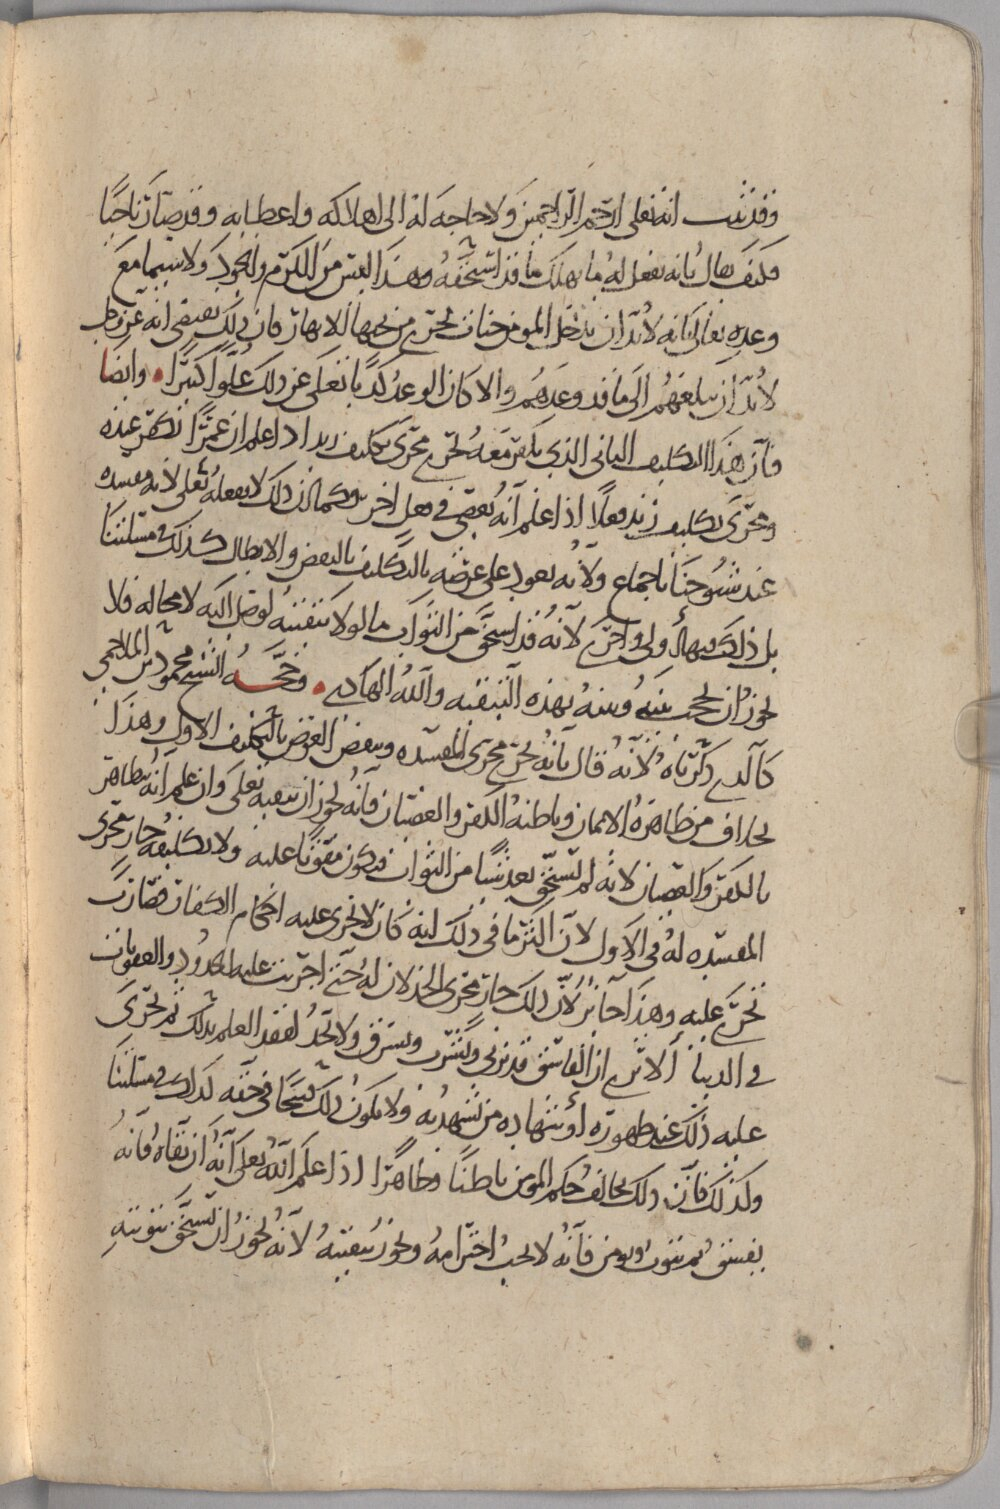 وقد ثبت انه تعلى ارحم الراحمين ولا حاجة له الى اهلاكه واعطابه وقد صار ناجيًا
فكيف يقال بانه يفعل له ما يهلك ما قد استحقه وهذا ليس من الكرم والجود ولا سيما مع
وعده تعالى بانه لا بد ان يدخل المومن جنات تجري من تحتها الانهار فان ذلك يقتضي انه عز وجل
لا بد ان يبلغهم الى ما قد وعدهم والا كان الوعد كذبًا تعلى عن ذلك علوًّا كبيرًا وايضًا
فان هذا التكليف الثاني الذي يكفر معه يجري مجرى تكليف زيد اذا علم ان عمرًا يكفر عنده
ومجرى تكليف زيد فعلًا اذا علم انه يعصي في فعل اخر وكما ان ذلك لا يفعله تعلى لانه مفسده
عند شيوخنا باجماع ولانه يعود على غرضه بالتكليف بالنقض والابطال كذلك في مسئلتنا
بل ذلك فيها أولى واحرى لانه قد استحق من الثواب ما لولا تبقيته لوصل اليه لا محالة فلا
يجوز ان يحجب بينه وبينه بهذه التبقيه والله الهادي وحجة الشيخ محمود بن الملاحمي
كالذي ذكرناه لأنه قال بأنه يجري مجرى المفسده وينقض الغرض بالتكليف الاول وهذا
بخلاف من ظاهره الايمان وباطنه الكفر والعصيان فأنه يجوز ان يبقيه تعلى وان علم انه يظاهر
بالكفر والعصيان لانه لم يستحق بعد شيئًا من الثواب فيكون مفوتًا عليه ولا تكليفه جار مجرى
المفسده له في الاول لان اكثر ما في ذلك انه كان لا تجرى عليه احكام الكفار فصارت
تجري عليه وهذا جائز لأن ذلك جار مجرى الحد لان له حتى اجريت عليه الحدود والعقوبات
في الدنيا ألا ترى ان الفاسق قد يزني ويشرب ويسرق ولا يحد لفقد العلم بذلك ثم تجرى
عليه ذلك عند ظهوره أو شهاده من تشهد به ولا يكون ذلك قبيحًا في حقه كذلك في مسئلتنا
وكذلك فان ذلك يخالف حكم المومن باطنًا وظاهرًا اذا علم الله تعلى أنه ان بقاه فأنه
يفسق ثم يتوب ويومن فأنه لا يجب اخترامه ويجوز تبقيته لأنه يجوز ان يستحق بتوبته